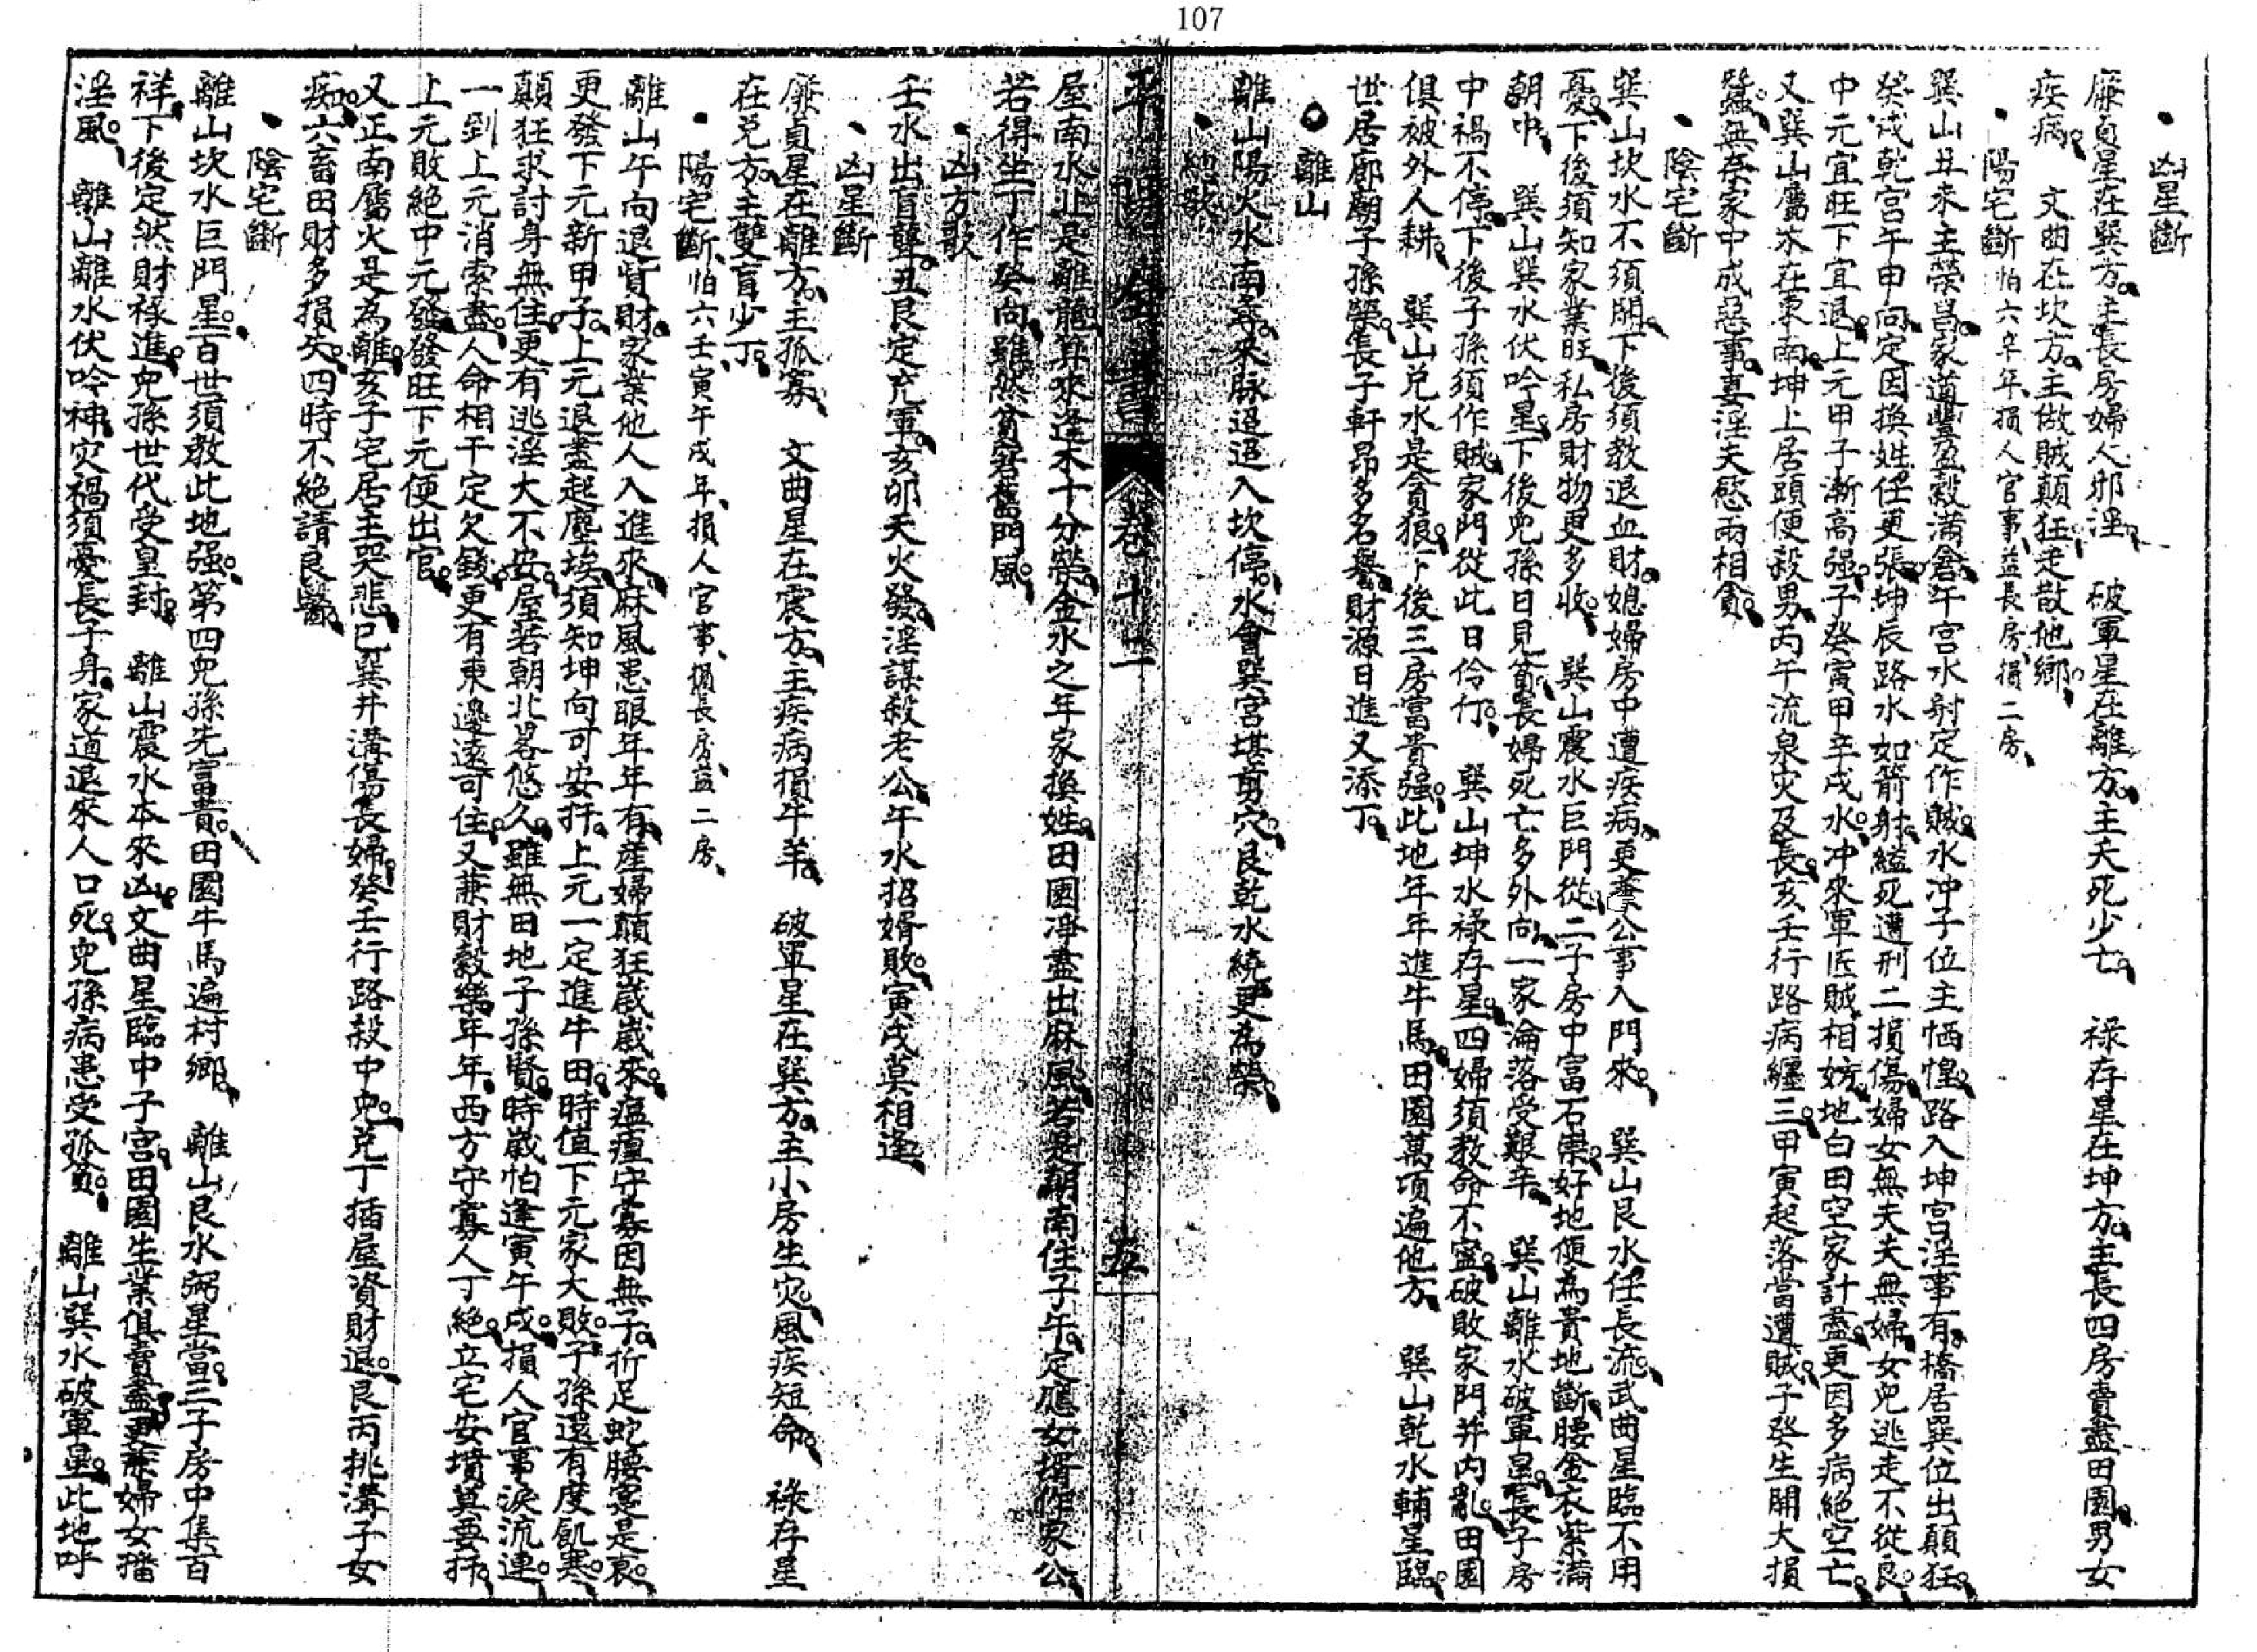 107
凶星斷
廉貞星在巽方。主長房婦人邪淫。 破軍星在離方。主夭死少亡。 祿存星在坤方。主長四房賣盡田園。男女
疾病。 文曲在坎方。主做賊顛狂。走散他鄉。
陽宅斷 怕六辛年、損人官事、益長房、損二房、
巽山丑未主榮昌。家道豐盈穀滿倉。午宮水射定作賊。水冲子位主恓惶。路入坤宮淫事有。橋居巽位出顛狂。
癸戌乾宮午申向。定因換姓任更張。坤辰路水如箭射。縊死遭刑二損傷。婦女無夫夫無婦。女兒逃走不從良。
中元宜旺下宜退。上元甲子漸高强。子癸寅甲辛戌水。冲來軍匠賊相妨。地白田空家計盡。更因多病絕空亡。
又巽山屬木在東南。坤上居頭便殺男。丙午流泉灾及長。亥壬行路病纏三。甲寅起落當遭賊。子癸生開大損
蠶。無奈家中成惡事。妻淫夫慾兩相貪。
陰宅斷
巽山坎水不須開。下後須教退血財。媳婦房中遭疾病。更蓁公事入門來。 巽山艮水任長流。武曲星臨不用
憂。下後須知家業旺。私房財物更多收。 巽山震水巨門從。二子房中富石崇。好地便為貴地斷。腰金衣紫滿
朝中。 巽山巽水伏吟星。下後兒孫日見貧。長婦死亡多外向。一家淪落受艱辛。 巽山離水破軍星。長子房
中禍不停。下後子孫須作賊。家門從此日伶仃。 巽山坤水祿存星。四婦須教命不寧。破敗家門井內亂。田園
俱被外人耕。 巽山兌水是貪狼。下後三房富貴强。此地年年進牛馬。田園萬項遍他方。 巽山乾水輔星臨。
世居廊廟子孫榮。長子軒昂多名譽。財源日進又添丁。
離山
總歌
離山陽火水南尋。來脉迢迢入坎停。水會巽宮堪剪穴。艮乾水繞更為榮。
卷十二 五
屋南水北是離龍。算來逢木十分榮。金水之年家換姓。田園凈盡出麻風。若是朝南住子午。定應女壻作家公。
若得坐丁作癸向。雖然貧窘舊門風。
凶方歌
壬水出盲聾。丑艮定充軍。亥卯天火發。淫謀殺老公。午水招婿敗。寅戌莫相逢。
凶星斷
廉貞星在離方。主孤寡。 文曲星在震方。主疾病損牛羊。 破軍星在巽方。主小房生灾。風疾短命。 祿存星
在兌方。主雙盲少丁。
陽宅斷 怕六壬、寅午戌年、損人官事、損長房、益二房、
離山午向退資財。家業他人入進來。麻風患眼年年有。產婦顛狂歲歲來。瘟瘽守寡因無子。折足蛇腰寔是哀。
更發下元新甲子。上元退盡起塵埃。須知坤向可安扦。上元一定進牛田。時值下元家大敗。子孫還有度飢寒。
顛狂求討身無住。更有逃淫大不安。屋若朝北畧悠久。雖無田地子孫賢。時歲怕逢寅午戌。損人官事淚流連。
一到上元消索盡。人命相干定欠錢。更有東邊遠可住。又兼財穀樂年年。西方守寡人丁絕。立宅安墳莫要扦。
上元敗絕中元發。發旺下元便出官。
又正南屬火是為離。亥子宅居主哭悲。巳巽井溝傷長婦。癸壬行路殺中兒。兌丁插屋資財退。艮丙挑溝子女
痴。六畜田財多損失。四時不絕請良醫。
陰宅斷
離山坎水巨門星。百世須教此地强。第四兒孫先富貴。田園牛馬遍村鄉。 離山艮水弼星當。三子房中集百
祥。下後定然財祿進。兒孫世代受皇封。 離山震水本來凶。文曲星臨中子宮。田園生業俱賣盡。更兼婦女播
淫風。 離山離水伏吟神。灾禍須憂長子身。家道退來人口死。兒孫病患受孤貧。 離山巽水破軍星。此地呼